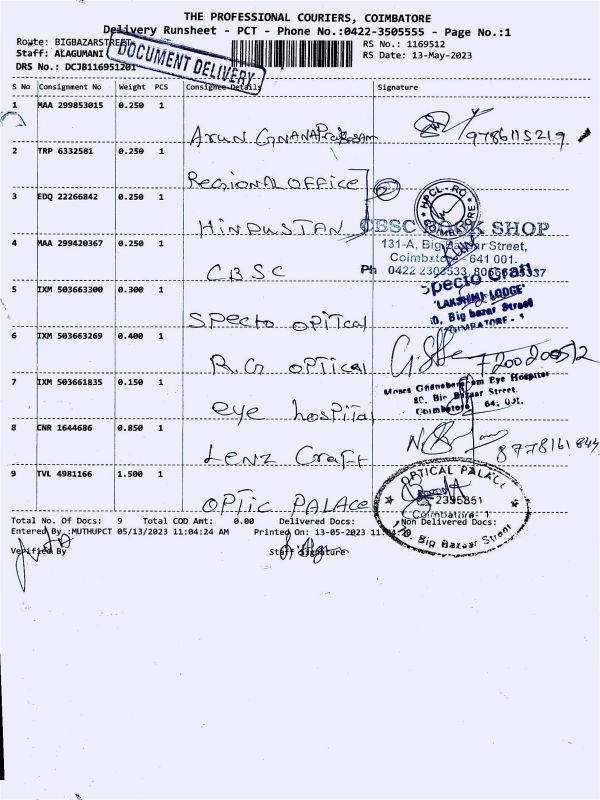 THE PROFESSIONAL COURIERS, COIMBATORE
Delivery Runsheet - PCT - Phone No.:0422-3505555 - Page No.:1
Route: BIGBAZARSTREET
RS No.: 1169512
Staff: ALAGUMANI
RS Date: 13-May-2023
DOCUMENT DELIVERY
DRS No.: DCJB116951201
S No Consignment No Weight PCS Consignee Details Signature
1 MAA 299853015 0.250 1
Arun Gnanaprakasam 9786115219
2 TRP 6332581 0.250 1
Regional office
3 EDQ 22266842 0.250 1
HPCL-RO
COIMBATORE
Hindustan
CBSC BOOK SHOP
4 MAA 299420367 0.250 1
131-A, Big Bazaar Street,
Coimbatore 641 001.
CBSC
Ph 0422 2303533,
Specto Craft
5 IXM 503663300 0.300 1
'LAKSHMI LODGE'
Big bazar Street
COIMBATORE - 1
Specto optical
6 IXM 503663269 0.400 1
R.G optical
7 IXM 503661835 0.150 1
Eye Hospital
80, Big Bazaar Street.
Coimbatore 641 001.
eye hospital
8 CNR 1644686 0.850 1
Lenz Craft
9 TVL 4981166 1.500 1
OPTICAL PALACE
2395851
Coimbatore-1
Big Bazaar Street
OPTIC PALACE
Total No. Of Docs: 9 Total COD Amt: 0.00 Delivered Docs: Non Delivered Docs:
Entered By :MUTHUPCT 05/13/2023 11:04:24 AM Printed On: 13-05-2023
Verified By Staff Signature